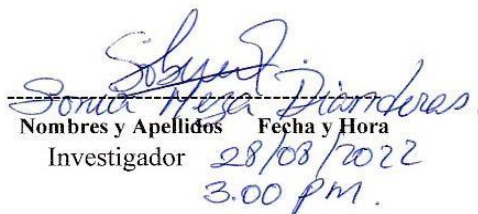 Sonia Meza Dianderas
Nombres y Apellidos Fecha y Hora
Investigador 28/08/2022
3.00 pm.